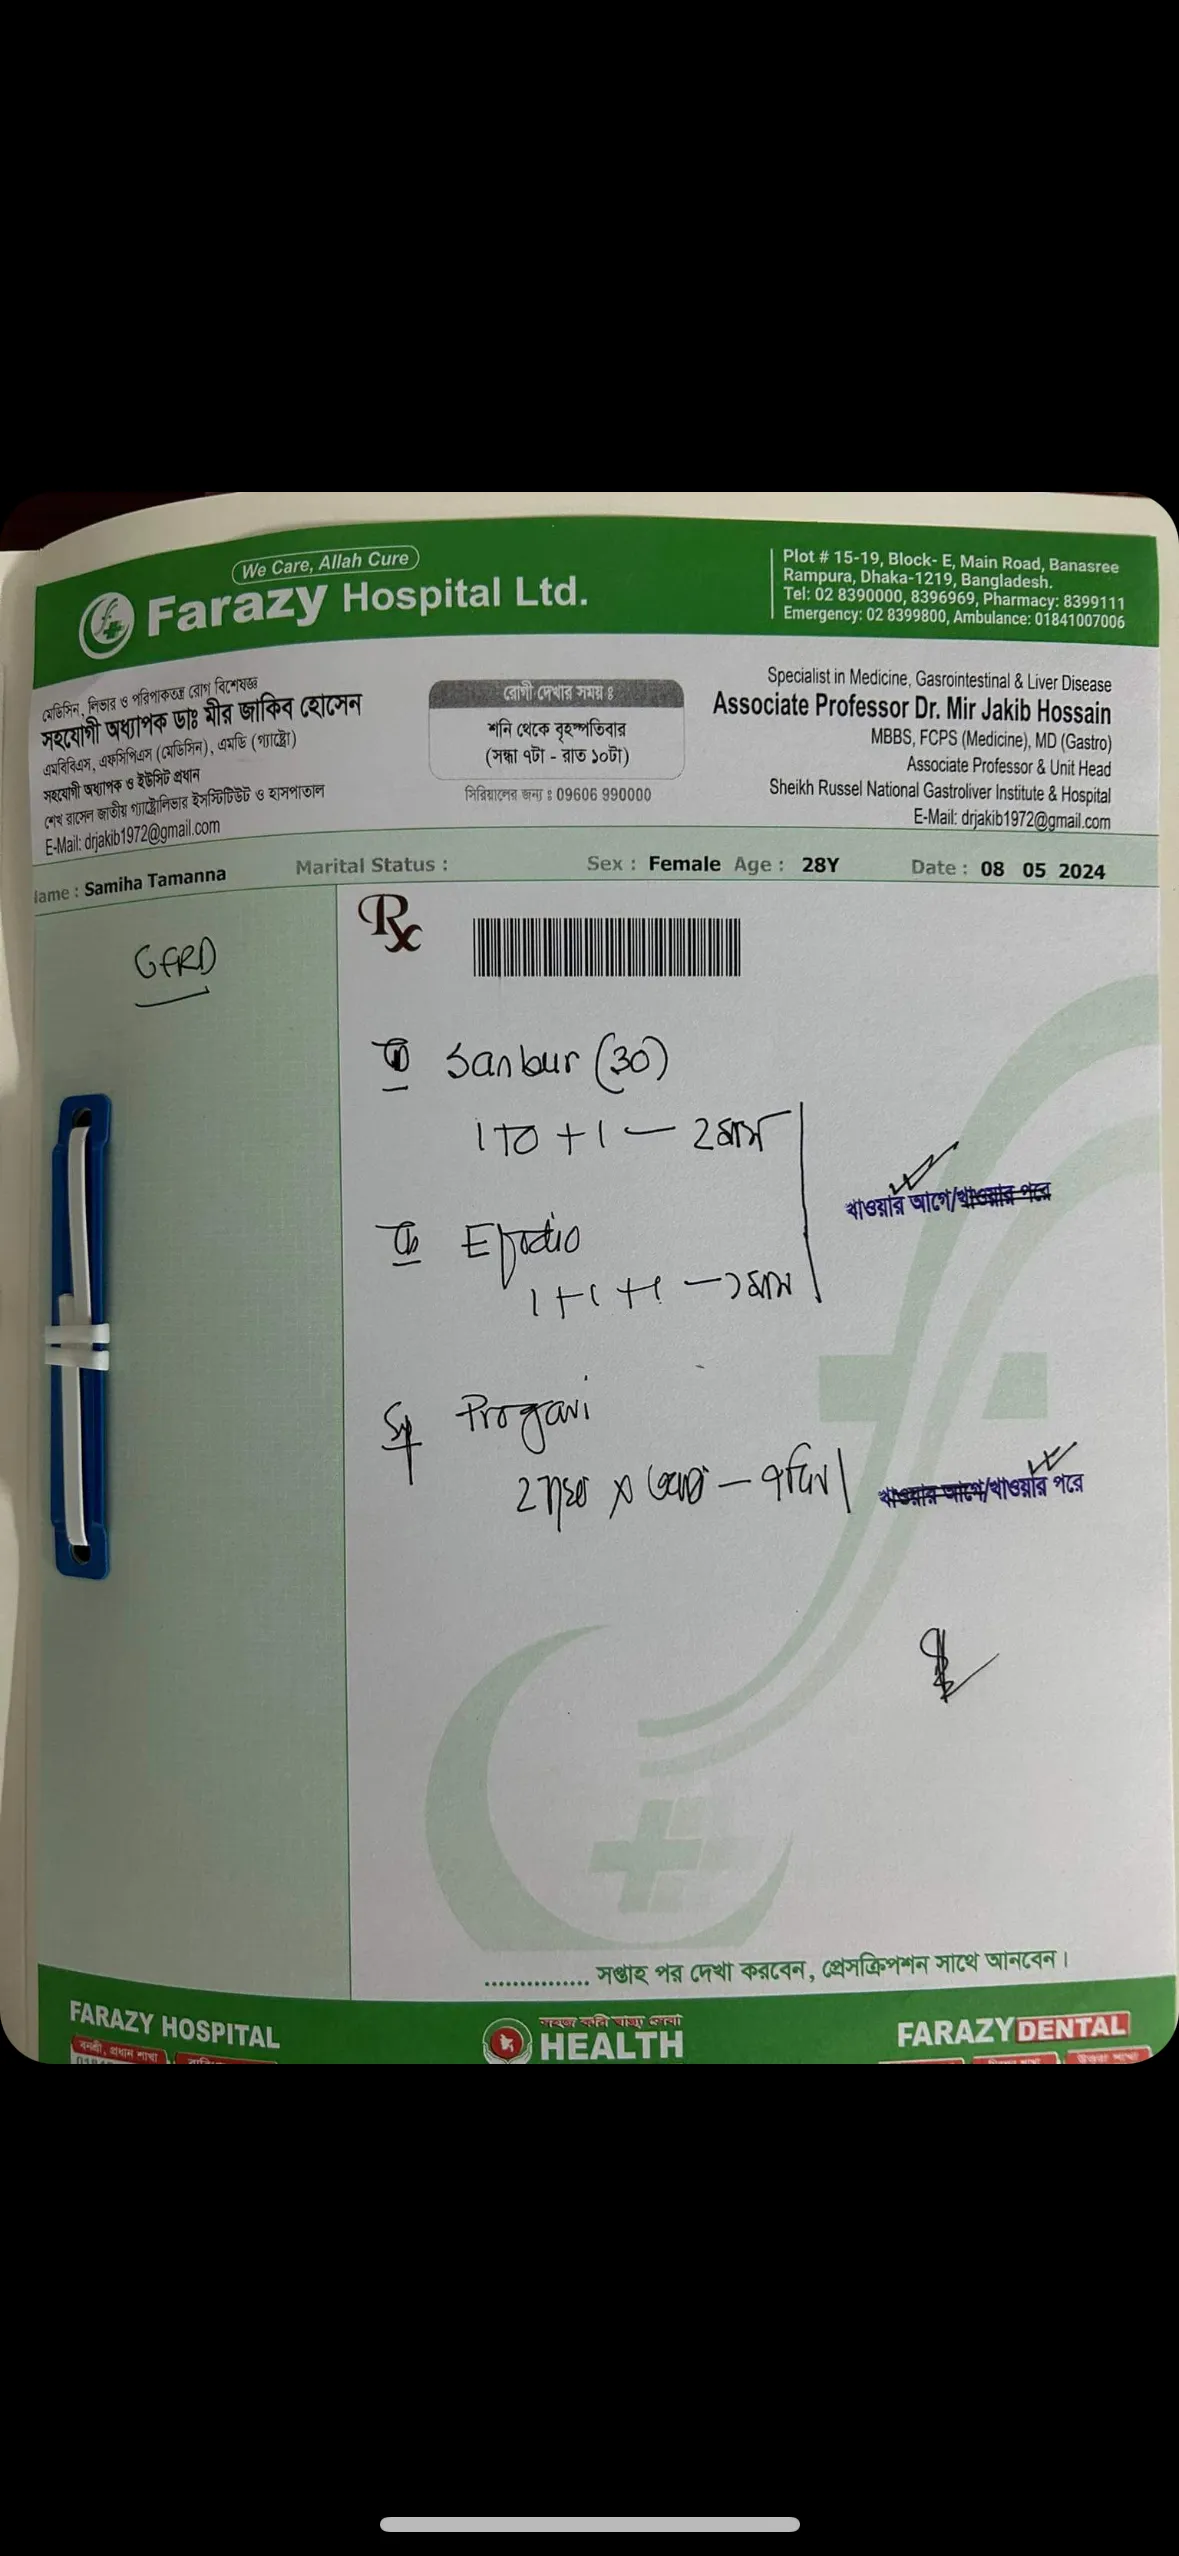 We Care, Allah Cure
Farazy Hospital Ltd.
Plot # 15-19, Block- E, Main Road, Banasree
Rampura, Dhaka-1219, Bangladesh.
Tel: 02 8390000, 8396969, Pharmacy: 8399111
Emergency: 02 8399800, Ambulance: 01841007006
মেডিসিন, লিভার ও পরিপাকতন্ত্র রোগ বিশেষজ্ঞ
সহযোগী অধ্যাপক ডাঃ মীর জাকিব হোসেন
এমবিবিএস, এফসিপিএস (মেডিসিন), এমডি (গ্যাষ্ট্রো)
সহযোগী অধ্যাপক ও ইউনিট প্রধান
শেখ রাসেল জাতীয় গ্যাষ্ট্রোলিভার ইন্সটিটিউট ও হাসপাতাল
E-Mail: drjakib1972@gmail.com
রোগী দেখার সময় ঃ
শনি থেকে বৃহস্পতিবার
(সন্ধা ৭টা - রাত ১০টা)
সিরিয়ালের জন্য ঃ 09606 990000
Specialist in Medicine, Gasrointestinal & Liver Disease
Associate Professor Dr. Mir Jakib Hossain
MBBS, FCPS (Medicine), MD (Gastro)
Associate Professor & Unit Head
Sheikh Russel National Gastroliver Institute & Hospital
E-Mail: drjakib1972@gmail.com
lame : Samiha Tamanna Marital Status : Sex : Female Age : 28Y Date : 08 05 2024
GERD
Rx
Sanbur (30)
1+0+1 — 2মাস
খাওয়ার আগে/খাওয়ার পরে
1+1+1 — ১মাস
Progavi
খাওয়ার আগে/খাওয়ার পরে
............... সপ্তাহ পর দেখা করবেন, প্রেসক্রিপশন সাথে আনবেন।
FARAZY HOSPITAL
বনশ্রী, প্রধান শাখা
HEALTH
FARAZY DENTAL